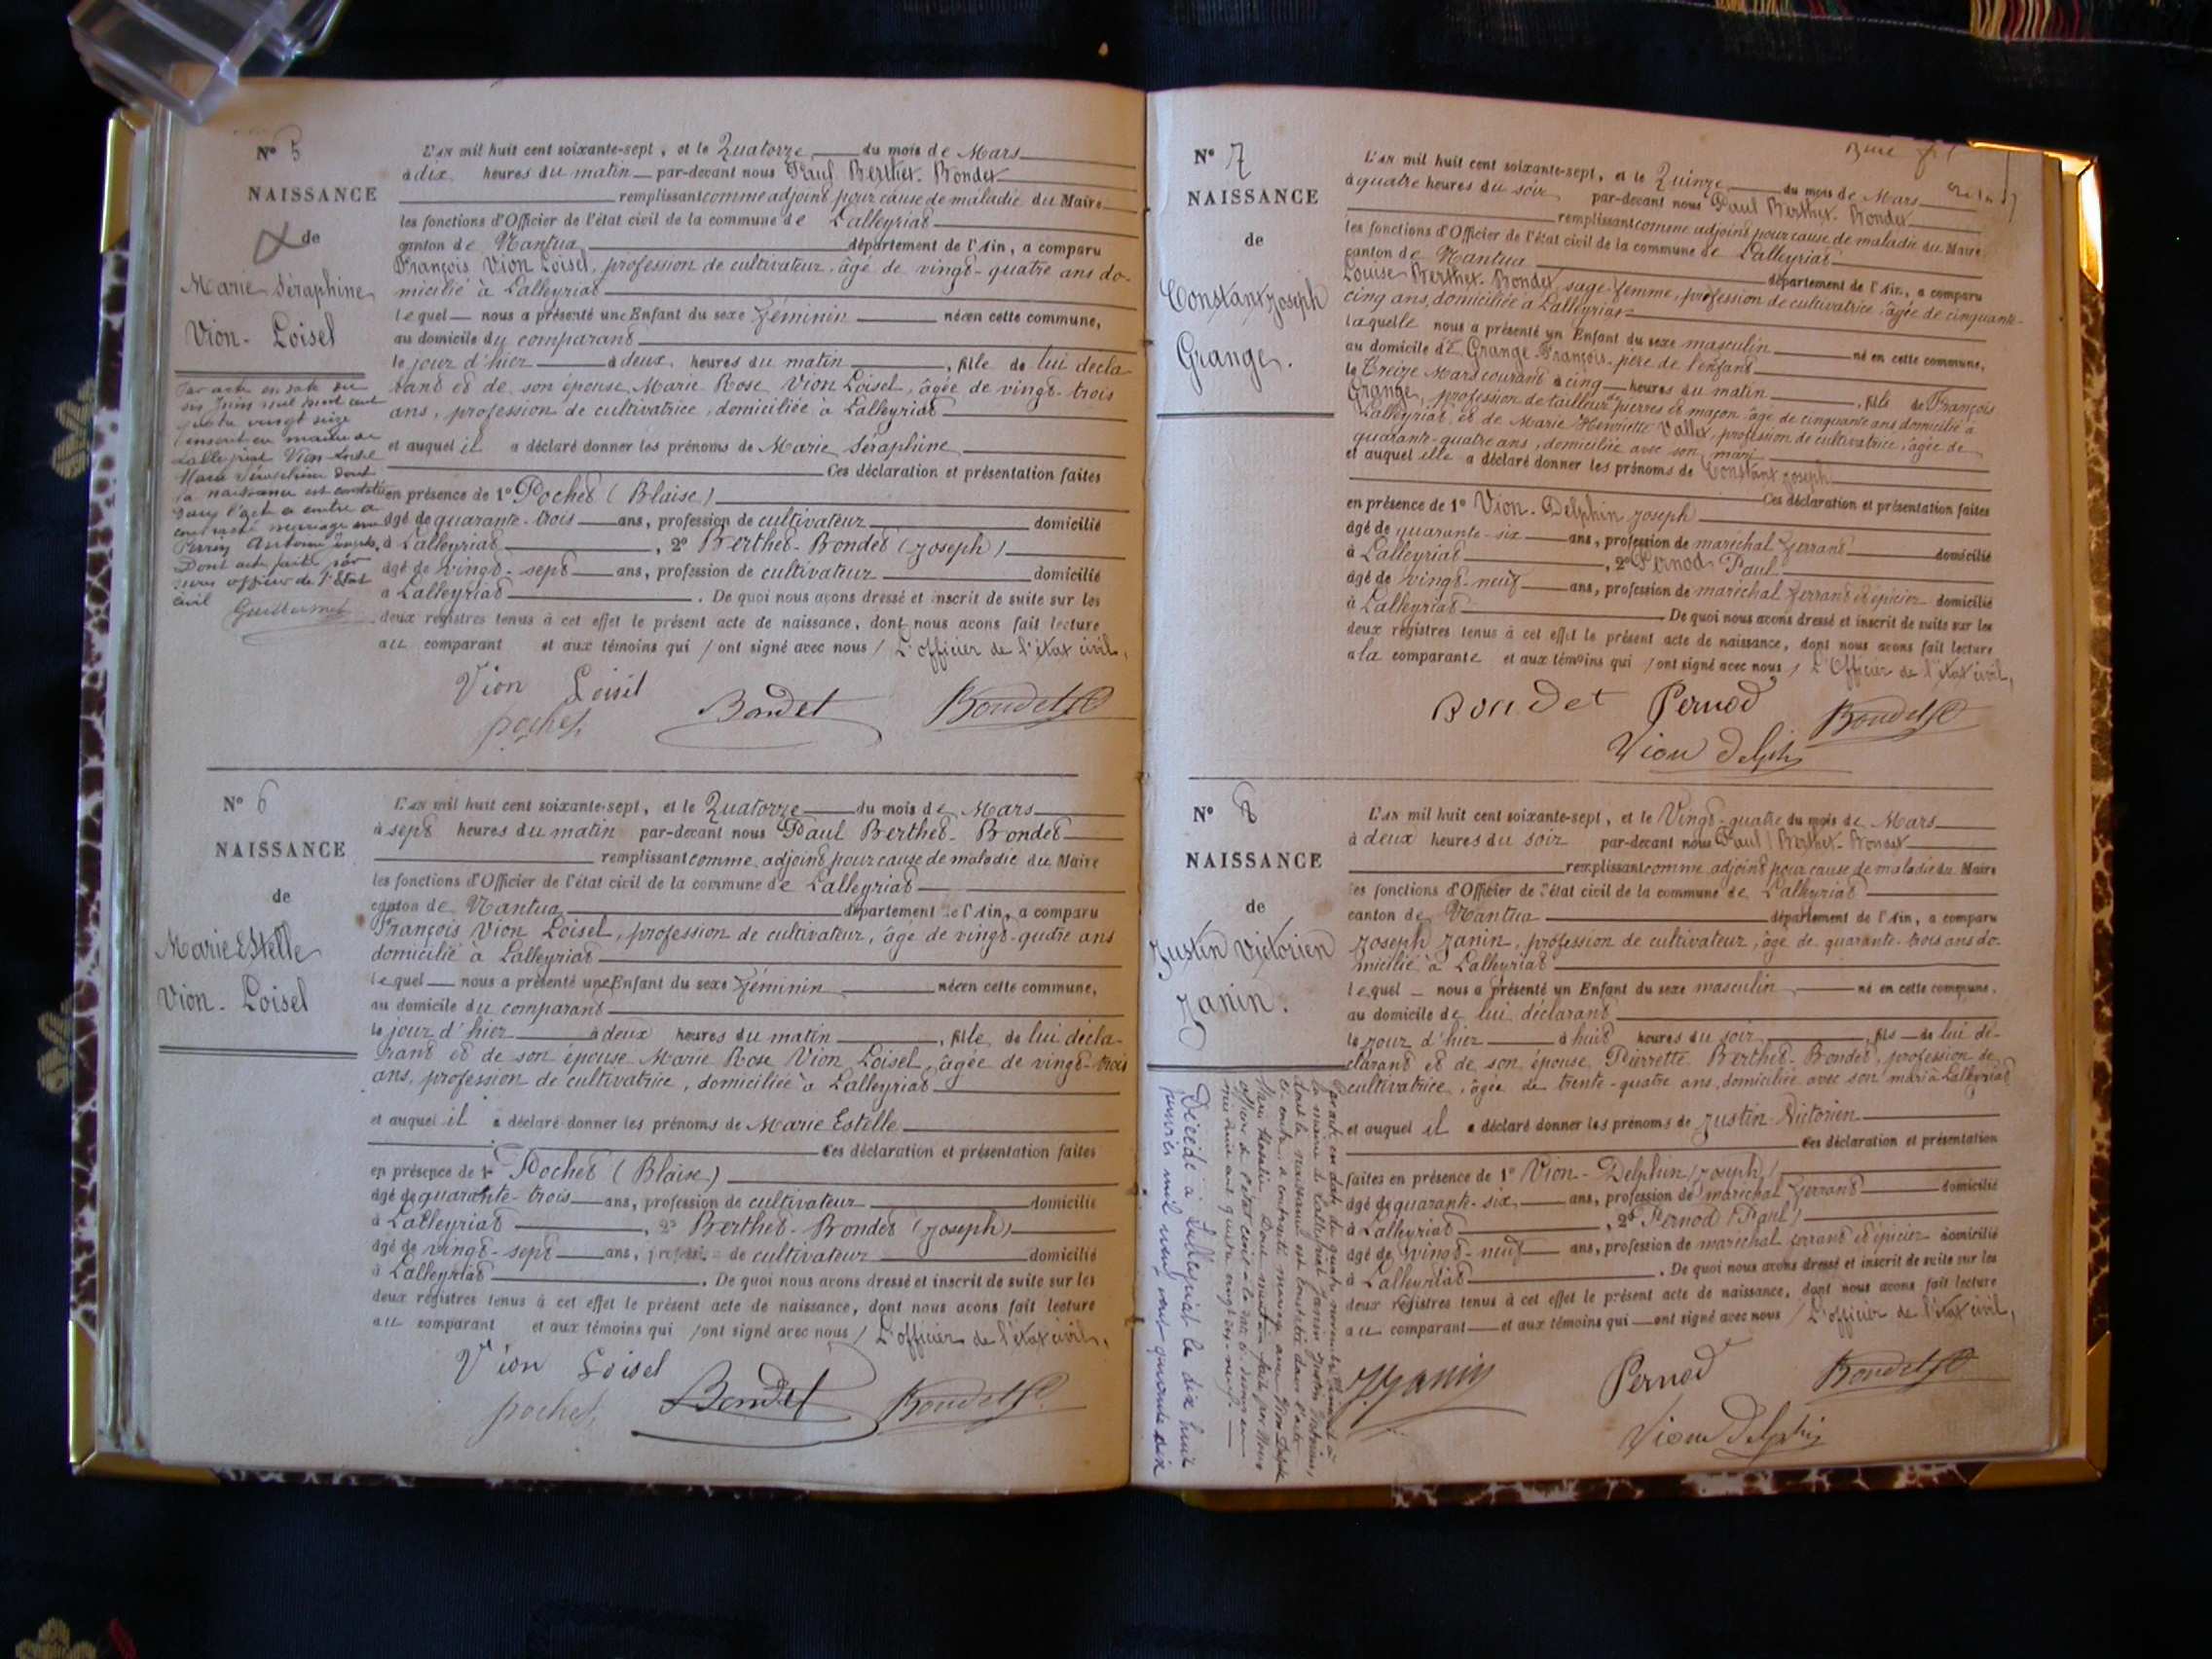 N° 5
NAISSANCE
de
Marie Séraphine
Vion-Loisel
Par acte en date du
six Juin mil huit cent
quatre vingt seize
inscrit en mairie de
Lalleyriat Vion Loisel
Marie Séraphine dont
la naissance est constatée
dans l'acte ci contre a
contracté mariage avec
Perrin Antoine
Dont acte faite par
nous officier de l'Etat
civil Guillermet
L'AN mil huit cent soixante-sept, et le Quatorze du mois de Mars
à dix heures du matin par-devant nous Paul Berthet-Bondet
remplissant comme adjoint pour cause de maladie du Maire
les fonctions d'Officier de l'état civil de la commune de Lalleyriat
canton de Nantua département de l'Ain, a comparu
François Vion Loisel, profession de cultivateur, âgé de vingt-quatre ans do-
micilié à Lalleyriat
lequel nous a présenté une Enfant du sexe féminin née en cette commune,
au domicile du comparant
le jour d'hier à deux heures du matin, fille de lui décla-
rant et de son épouse Marie Rose Vion Loisel, âgée de vingt-trois
ans, profession de cultivatrice, domiciliée à Lalleyriat
et auquel il a déclaré donner les prénoms de Marie Séraphine
Ces déclaration et présentation faites
en présence de 1° Pochet (Blaise)
âgé de quarante-trois ans, profession de cultivateur domicilié
à Lalleyriat, 2° Berthet-Bondet (Joseph)
âgé de vingt-sept ans, profession de cultivateur domicilié
à Lalleyriat. De quoi nous avons dressé et inscrit de suite sur les
deux registres tenus à cet effet le présent acte de naissance, dont nous avons fait lecture
au comparant et aux témoins qui / ont signé avec nous / L'officier de l'état civil,
Vion Loisel
Pochet Bondet Bondet P
N° 6
NAISSANCE
de
Marie Estelle
Vion-Loisel
L'AN mil huit cent soixante-sept, et le Quatorze du mois de Mars
à sept heures du matin par-devant nous Paul Berthet-Bondet
remplissant comme adjoint pour cause de maladie du Maire
les fonctions d'Officier de l'état civil de la commune de Lalleyriat
canton de Nantua département de l'Ain, a comparu
François Vion Loisel, profession de cultivateur, âgé de vingt-quatre ans
domicilié à Lalleyriat
lequel nous a présenté une Enfant du sexe féminin née en cette commune,
au domicile du comparant
le jour d'hier à deux heures du matin, fille de lui décla-
rant et de son épouse Marie Rose Vion Loisel, âgée de vingt-trois
ans, profession de cultivatrice, domiciliée à Lalleyriat
et auquel il a déclaré donner les prénoms de Marie Estelle
Ces déclaration et présentation faites
en présence de 1° Pochet (Blaise)
âgé de quarante-trois ans, profession de cultivateur domicilié
à Lalleyriat, 2° Berthet-Bondet (Joseph)
âgé de vingt-sept ans, profession de cultivateur domicilié
à Lalleyriat. De quoi nous avons dressé et inscrit de suite sur les
deux registres tenus à cet effet le présent acte de naissance, dont nous avons fait lecture
au comparant et aux témoins qui / ont signé avec nous / L'officier de l'état civil,
Vion Loisel
Pochet Bondet Bondet P
N° 7
NAISSANCE
de
Constant Joseph
Grange.
L'AN mil huit cent soixante-sept, et le Quinze du mois de Mars
à quatre heures du soir par-devant nous Paul Berthet-Bondet
remplissant comme adjoint pour cause de maladie du Maire
les fonctions d'Officier de l'état civil de la commune de Lalleyriat
canton de Nantua département de l'Ain, a comparu
Louise Berthet-Bondet, sage-femme, profession de cultivatrice, âgée de cinquante-
cinq ans, domiciliée à Lalleyriat
laquelle nous a présenté un Enfant du sexe masculin né en cette commune,
au domicile de Grange François, père de l'enfant
le Treize Mars courant à cinq heures du matin, fils de François
Grange, profession de tailleur de pierres et maçon, âgé de cinquante ans domicilié à
Lalleyriat et de Marie Henriette Vallet, profession de cultivatrice, âgée de
quarante-quatre ans, domiciliée avec son mari
et auquel elle a déclaré donner les prénoms de Constant Joseph
Ces déclaration et présentation faites
en présence de 1° Vion-Delphin Joseph
âgé de quarante-six ans, profession de maréchal ferrant domicilié
à Lalleyriat, 2° Pernod-Paul
âgé de vingt-neuf ans, profession de maréchal ferrant et épicier domicilié
à Lalleyriat De quoi nous avons dressé et inscrit de suite sur les
deux registres tenus à cet effet le présent acte de naissance, dont nous avons fait lecture
à la comparante et aux témoins qui / ont signé avec nous / L'Officier de l'état civil,
Bondet Pernod Bondet P
Vion Delphin
N° 8
NAISSANCE
de
Justin Victorien
Janin.
Par acte en date du quatre novembre à
la mairie de Lalleyriat Janin Justin Victorien,
dont la naissance est constatée dans l'acte
ci-contre a contracté mariage avec Vion Delphin
Marie Dont mention faite par Nous
officier de l'état civil
mil huit cent quatre vingt dix-neuf.
Décédé à Lalleyriat le dix huit
janvier mil neuf cent quarante six
L'AN mil huit cent soixante-sept, et le Vingt-quatre du mois de Mars
à deux heures du soir par-devant nous Paul Berthet-Bondet
remplissant comme adjoint pour cause de maladie du Maire
les fonctions d'Officier de l'état civil de la commune de Lalleyriat
canton de Nantua département de l'Ain, a comparu
Joseph Janin, profession de cultivateur, âgé de quarante-trois ans do-
micilié à Lalleyriat
lequel nous a présenté un Enfant du sexe masculin né en cette commune.
au domicile de lui déclarant
le jour d'hier à huit heures du soir, fils de lui dé-
clarant et de son épouse Pierrette Berthet-Bondet, profession de
cultivatrice, âgée de trente-quatre ans, domiciliée avec son mari à Lalleyriat
et auquel il a déclaré donner les prénoms de Justin-Victorien
Ces déclaration et présentation
faites en présence de 1° Vion-Delphin (Joseph)
âgé de quarante-six ans, profession de maréchal ferrant domicilié
à Lalleyriat, 2° Pernod (Paul)
âgé de vingt-neuf ans, profession de maréchal ferrant et épicier domicilié
à Lalleyriat. De quoi nous avons dressé et inscrit de suite sur les
deux registres tenus à cet effet le présent acte de naissance, dont nous avons fait lecture
au comparant et aux témoins qui ont signé avec nous / L'officier de l'état civil,
J. Janin Pernod Bondet P
Vion Delphin